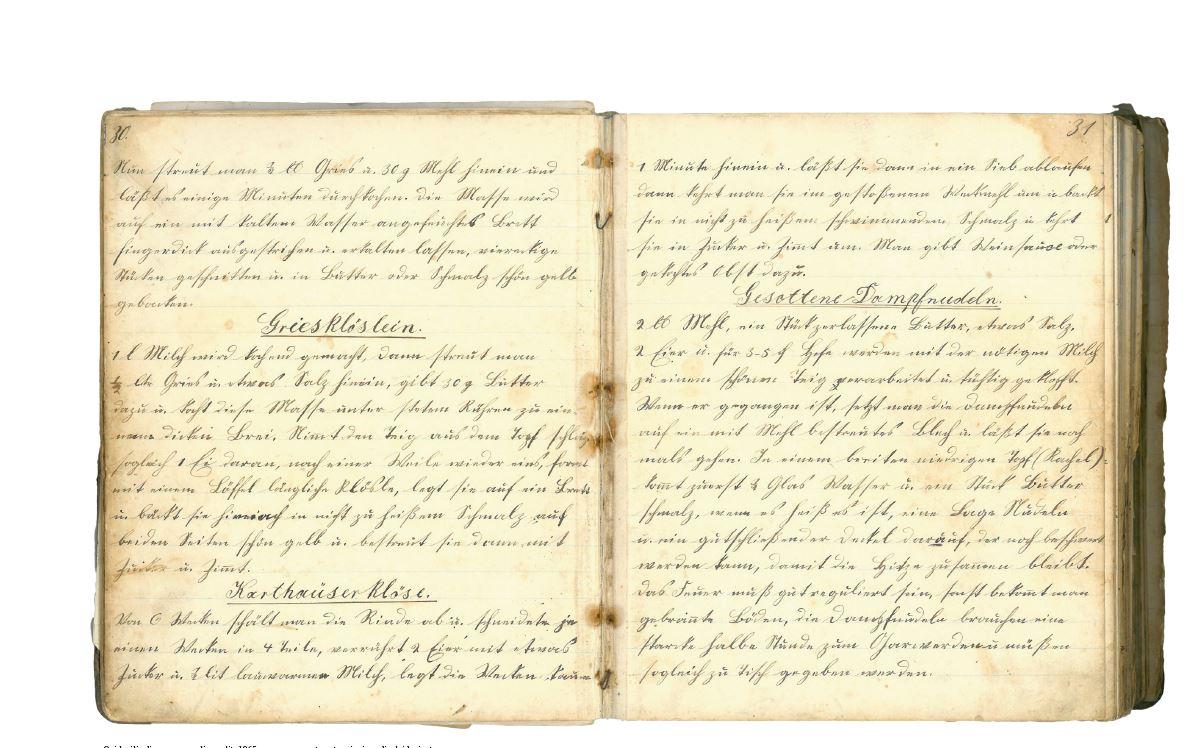 30.
Nun streut man ½ ℔ Gries u. 30 g Mehl hinein und
läßt es einige Minuten durchkochen. Die Masse wird
auf ein mit kaltem Wasser angefeuchtet Brett
fingerdick ausgestrichen u. erkalten lassen, viereckige
Stücken geschnitten u. in Butter oder Schmalz schön gelb
gebacken.
Griesklöslein.
1 l Milch wird kochend gemacht, dann streut man
Gries u. etwas Salz hinein, gibt 30 g Butter
dazu u. kocht diese Masse unter stetem Rühren zu ein-
dicken Brei. Nimt den Teig aus dem Topf schlägt
sogleich 1 Ei daran, nach einer Weile wieder eins, formt
mit einem Löffel längliche Klösle, legt sie auf ein Brett
u. bäckt sie hernach in nicht zu heißem Schmalz auf
beiden Seiten schön gelb u. bestreut sie dann mit
Zucker u. Zimmt.
Karthäuserklöse.
Von 6 Wecken schält man die Rinde ab u. schneidete je
einen Wecken in 4 Teile, verrührt 2 Eier mit etwas
Zucker u. ½ lit lauwarmen Milch, legt die Wecken kaum
31
1 Minute hinein u. läßt sie dann in ein Sieb ablaufen
dann kehrt man sie im gestoßenem Weckmehl um u. backt
sie in nicht zu heißem schwimmendem Schmalz u. kehrt
sie in Zucker u. Zimt um. Man gibt Weinsauce oder
gekochtes Obst dazu.
Gesottene Dampfnudeln.
2 ℔ Mehl, ein Stück zerlassene Butter, etwas Salz,
2 Eier u. für 3-5 ₰ Hefe werden mit der nötigen Milch
zu einem schönen Teig verarbeitet u. tüchtig geklopft.
Wenn er gegangen ist, setzt man die Dampfnudeln
auf ein mit Mehl bestreutes Blech u. läßt sie noch
mals gehen. In einem breiten niedrigen Topf (Kachel)
komt zuerst ½ Glas Wasser u. ein Stück Butter
schmalz, wenn es heiß es ist, eine Lage Nudeln
u. ein gutschließender Deckel darauf, der noch beschwert
werden kann, damit die Hitze zusammen bleibt.
Das Feuer muß gut reguliert sein, sonst bekomt man
gebrannte Böden, die Dampfnudeln brauchen eine
starke halbe Stunde zum Gharwerden u. müßen
sogleich zu Tisch gegeben werden.